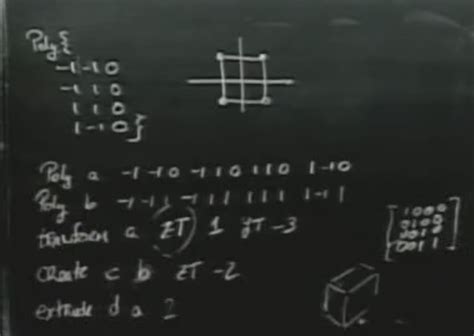 Poly {
-1 -1 0
-1 1 0
1 1 0
1 -1 0 }
Poly a -1 -1 0 -1 1 0 1 1 0 1 -1 0
Poly b -1 -1 1 -1 1 1 1 1 1 1 -1 1
transform a ZT 1 YT -3
create c b ZT -2
extrude d a 2
1 0 0 0
0 1 0 0
0 0 1 0
0 0 1 1